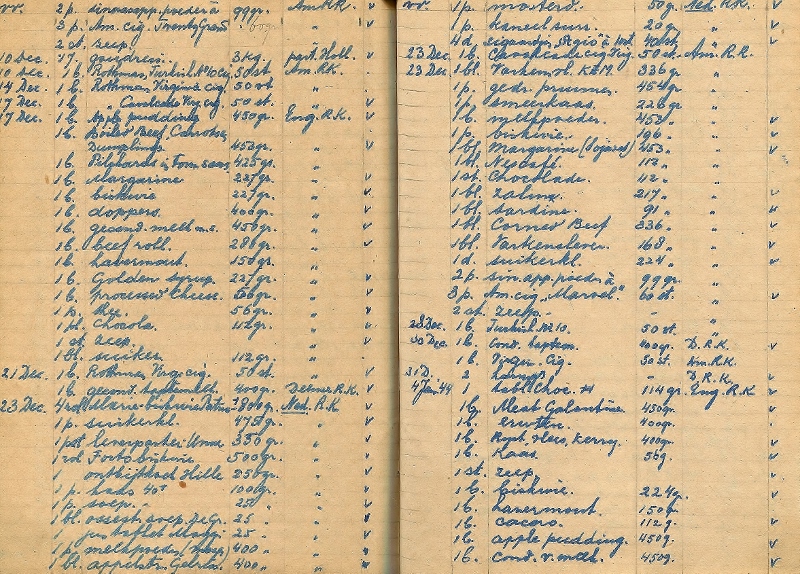 vr. 2 p. sinaasapp. poeder à 99 gr. Am. R.K. v
3 p. Am. cig. Twenty Grand 60 gr. " v
2 st. zeep " v
10 Dec. 17, 3 kg. part. Holl. v
10 Dec. 1 b. Rothmas, Turkish No 10 cig. 50 st Am. RK.
14 Dec. 1 b. Rothmas Virginia cig. 50 st "
17 Dec. 1 b. " Cavalcade Virg. cig. 50 st. " v
17 Dec. 1 b. Apple pudding 450 gr. Eng. R.K. v
1 b. Boiled Beef, Carrots &
Dumplings. 453 gr. " v
1 b. Pilchards in Tom. saus 425 gr. "
1 b. Margarine 227 gr. "
1 b. biskwie 227 gr. " v
1 b. doppers 400 gr. " v
1 b. gecond. melk m.s. 450 gr. " v
1 b. beef roll. 286 gr. " v
1 b. havermout 150 gr. "
1 b. Golden syrup. 227 gr. " v
1 b. processed Cheese. 56 gr. " v
1 p. thee. 56 gr. " v
1 pl. Chocola. 42 gr. " v
1 st. zeep. " v
1 bl. suiker 112 gr. " v
21 Dec. 1 b. Rothmas Virg. cig. 50 st "
1 b. gecond. 400 gr. R.K. v
23 Dec. 4 rol Marie-biskwie 1800 gr. Ned. R.K v
1 p. suikerkl. 475 gr. " v
1 pst leverpastei Unox 330 gr. " v
1 rol Forto biskwie 500 gr. " v
1 ontbijtkoek Hille 250 gr. " v
1 p. kaas 40+ 100 gr. " v
1 p. soep. 250 " v
1 bl. ossest. soep. 25 " " v
1 jus tablet Maggi 25 " " v
1 p. melkpoeder 400 " " v
1 bl. appelstr. 400 " " v
vr. 1 p. mosterd. 50 g. Ned. R.K. v
1 p. kaneelsurr. 20 g. " v
4 d. sigaretten à 40 st " v
23 Dec. 1 b. cig. 50 st. Am. R.R.
23 Dec. 1 bl. Varken vl. 336 gr. " v
1 p. gedr. pruimen 454 gr. " v
1 p. smeerkaas. 226 gr. " v
1 b. melkpoeder. 453 " " v
1 p. biskwie. 196 " " v
1 bl. Margarine 453 " " v
1 bl. Nescafé. 112 " "
1 st. Chocolade. 112 " "
1 bl. zalm. 217 " " v
1 bl. sardine. 91 " " v
1 bl. Corned Beef 336 " " v
1 bl. Varkenslever. 168 " " v
1 d. suikerkl. 224 " " v
2 p. sin. app. poeder à 99 gr. "
3 p. Am. cig. "Marvel" 60 st. " v
2 st. zeep. - "
28 Dec. 1 b. Turkish No 10. 50 st. "
30 Dec. 1 b. Cond. 400 gr. D.R.K. v
1 b. Virgin. Cig. 50 st. Am. R.K.
31 D. 2 - D.R.K. v
4 Jan '44 1 tabl. Choc. 114 gr. Eng. R.K v
1 b. Meat Galantine 450 gr. v
1 b. erwten. 400 gr. v
1 b. 400 gr. v
1 b. Kaas. 56 g. v
1 st. zeep.
1 b. biskwie. 224 g. v
1 b. havermout. 150 gr v
1 b. cacao. 112 g. v
1 b. apple pudding. 450 g. v
1 b. Cond. v. melk. 450 g. v